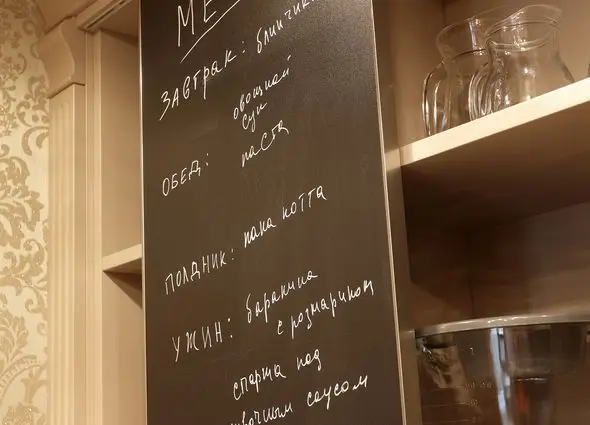 МЕ
ЗАВТРАК: блинчик
овощной
суп
ОБЕД: паста
ПОЛДНИК: пана котта
УЖИН: баранина
с розмарином
спаржа под
вочным соусом